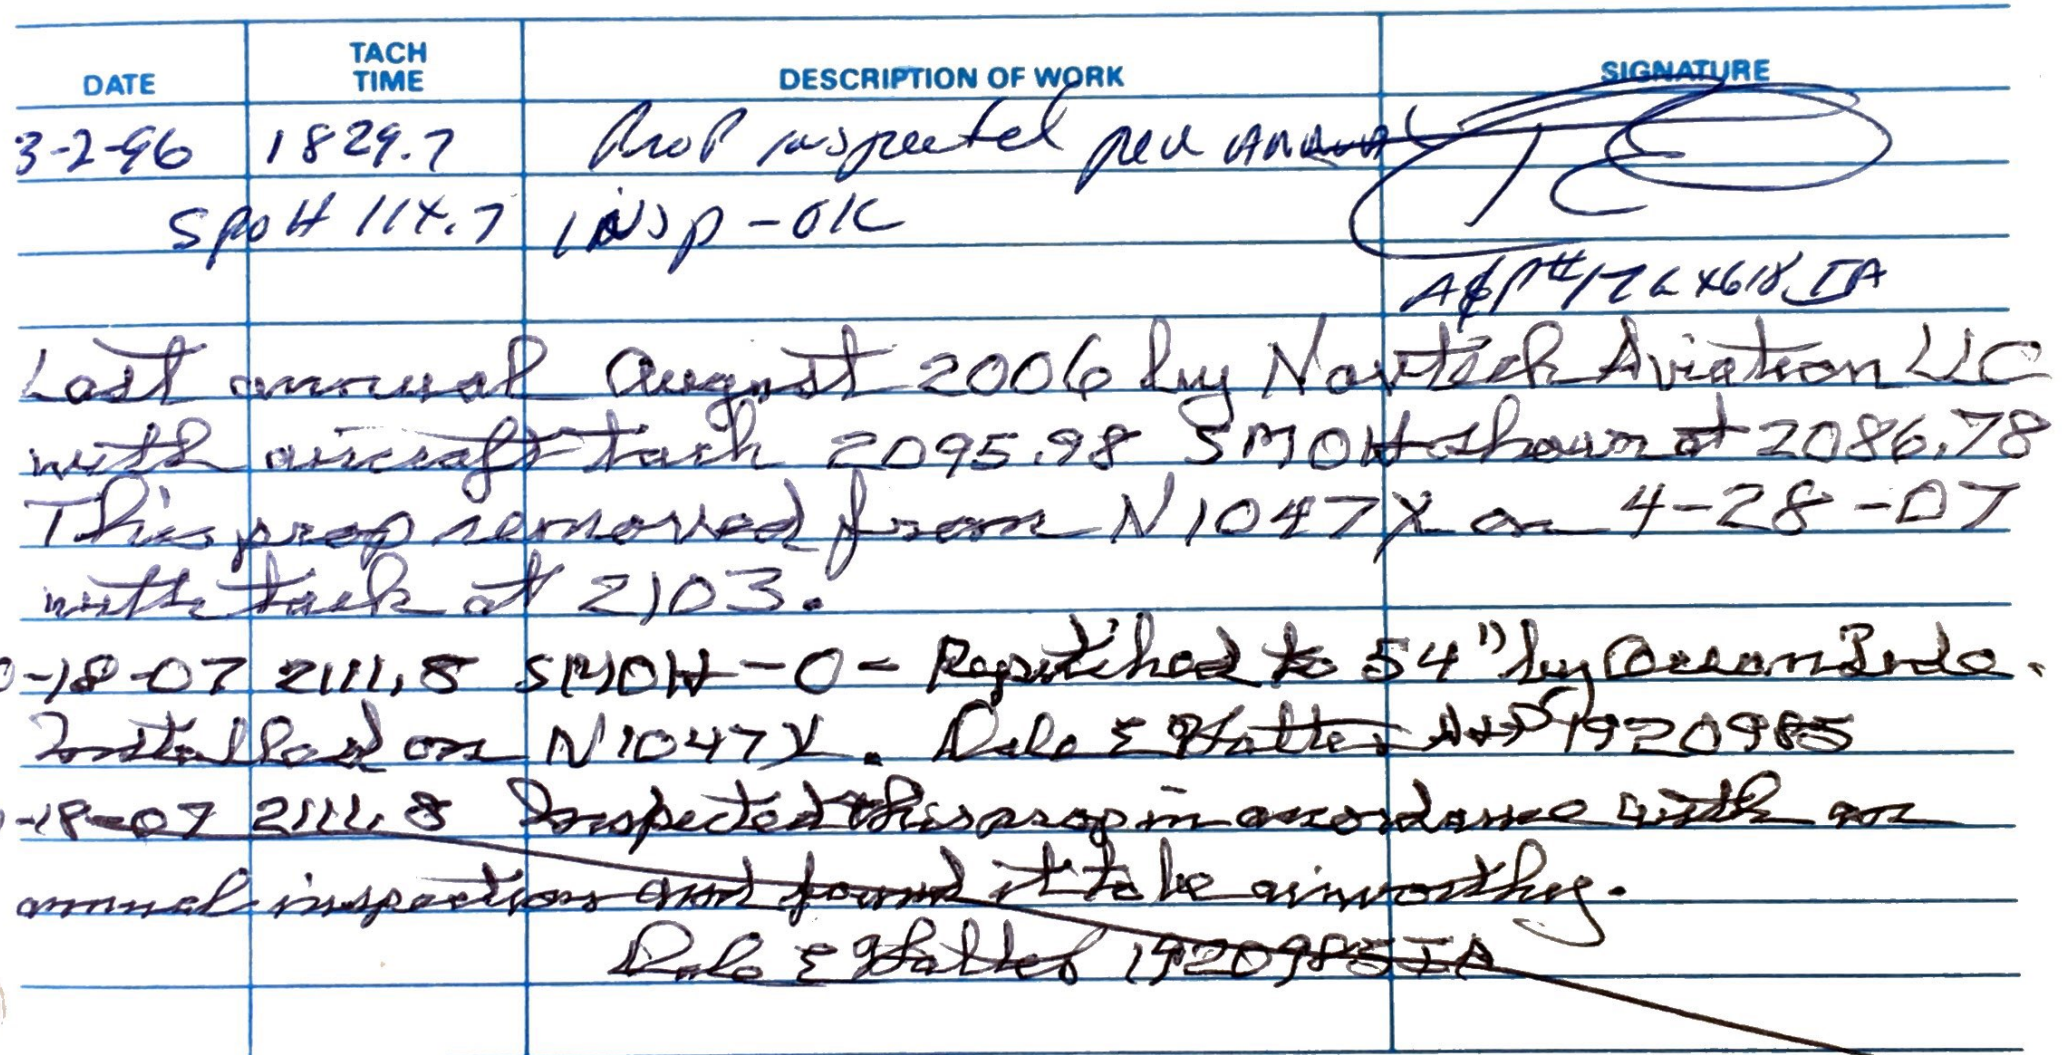 DATE TACH TIME DESCRIPTION OF WORK SIGNATURE
3-2-96 1829.7 Prop inspected per annual
SPOH 114.7 INSP - OK
A&P# IA
Last annual August 2006 by Navtech Aviation LLC
with aircraft tach 2095.98 SMOH shown at 2086.78
This prop removed from N1047X on 4-28-07
with tach at 2103.
-18-07 2111.8 SMOH - 0 - Repitched to 54" by
Installed on N1047X. Dale E A&P 1920985
-18-07 2111.8 Inspected this prop in accordance with an
annual inspection and found it to be airworthy.
Dale E 1920985 IA